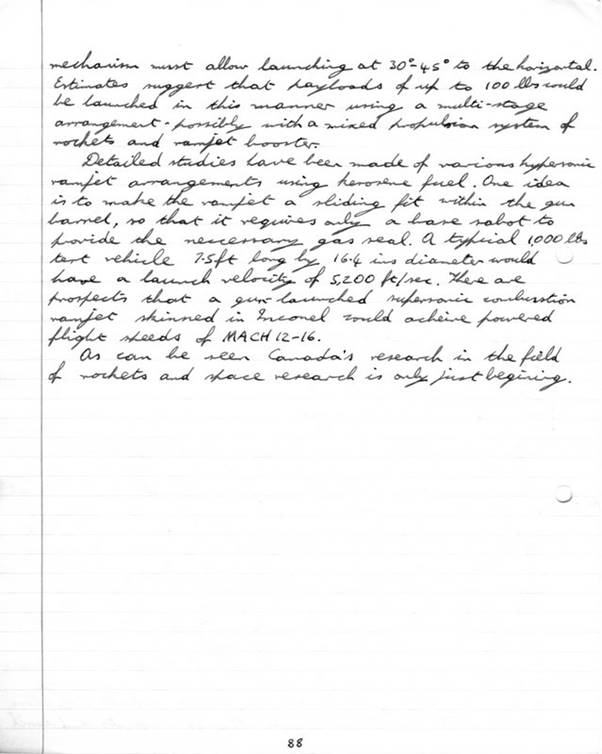 mechanism must allow launching at 30°-45° to the horizontal.
Estimates suggest that payloads of up to 100 lbs could
be launched in this manner using a multi-stage
arrangement - possibly with a mixed propulsion system of
rockets and ramjet booster.
Detailed studies have been made of various hypersonic
ramjet arrangements using kerosene fuel. One idea
is to make the ramjet a sliding fit within the gun
barrel, so that it requires only a base sabot to
provide the neccessary gas seal. A typical 1,000 lbs
test vehicle 7.5ft long by 16.4 ins diameter would
have a launch velocity of 5,200 ft/sec. There are
prospects that a gun-launched supersonic combustion
ramjet skinned in Inconel could acheive powered
flight speeds of MACH 12-16.
As can be seen Canada's research in the field
of rockets and space research is only just begining.
88